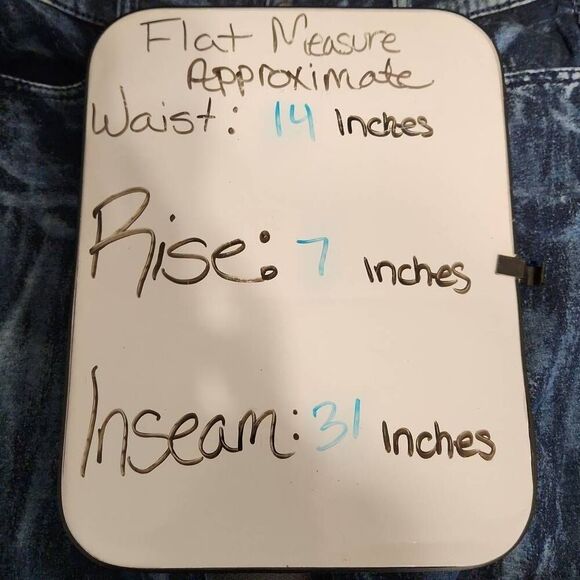 Flat Measure
Approximate
Waist: 14 Inches
Rise: 7 Inches
Inseam: 31 Inches